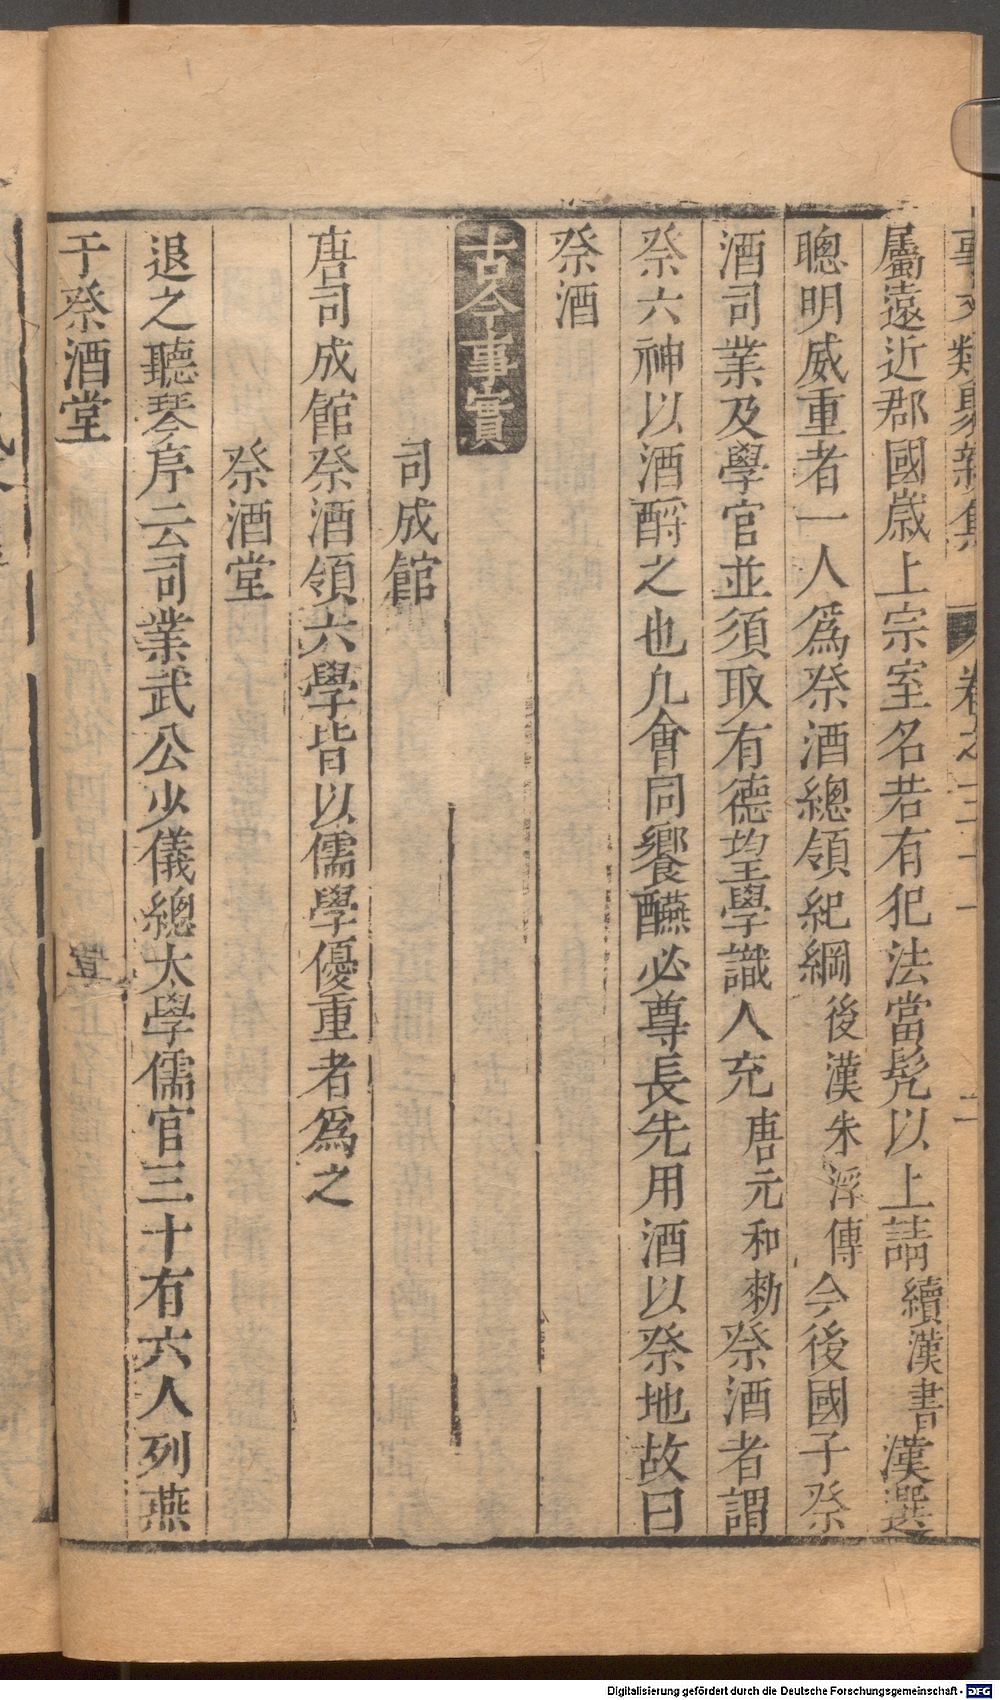 事文類聚新集 卷之三十一 二
屬遠近郡國歲上宗室名若有犯法當髡以上請續漢書漢選
聰明威重者一人爲祭酒總領紀綱後漢朱浮傳今後國子祭
酒司業及學官並須取有德望學識人充唐元和勑祭酒者謂
祭六神以酒酹之也凢會同饗醼必尊長先用酒以祭地故曰
祭酒
古今事實
司成館
唐司成館祭酒領六學皆以儒學優重者爲之
祭酒堂
退之聽琴序云司業武公少儀總太學儒官三十有六人列燕
于祭酒堂
Digitalisierung gefördert durch die Deutsche Forschungsgemeinschaft - DFG